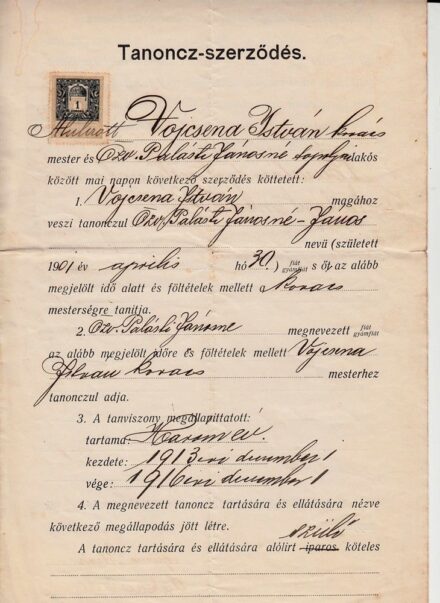 Tanoncz-szerződés.
1
Alulirott Vojcsena István kovács
mester és Özv. Palásti Jánosné topolyai lakós
között mai napon következő szerződés köttetett:
1. Vojcsena István magához
veszi tanonczul Özv. Palásti Jánosné - János
nevü (született
1901 év április hó 30.) fiát gyámfiát s őt az alább
megjelölt idő alatt és föltételek mellett kovács
mesterségre tanitja.
2. Özv. Palásti Jánosné megnevezett fiát gyámfiát
az alább megjelölt időre és föltételek mellett Vojcsena
István kovács mesterhez
tanonczul adja.
3. A tanviszony megállapittatott:
tartama: Három év.
kezdete: 1913 évi december 1
vége: 1916 évi december 1
4. A megnevezett tanoncz tartására és ellátására nézve
következő megállapodás jött létre.
szülő
A tanoncz tartására és ellátására alólirt iparos köteles